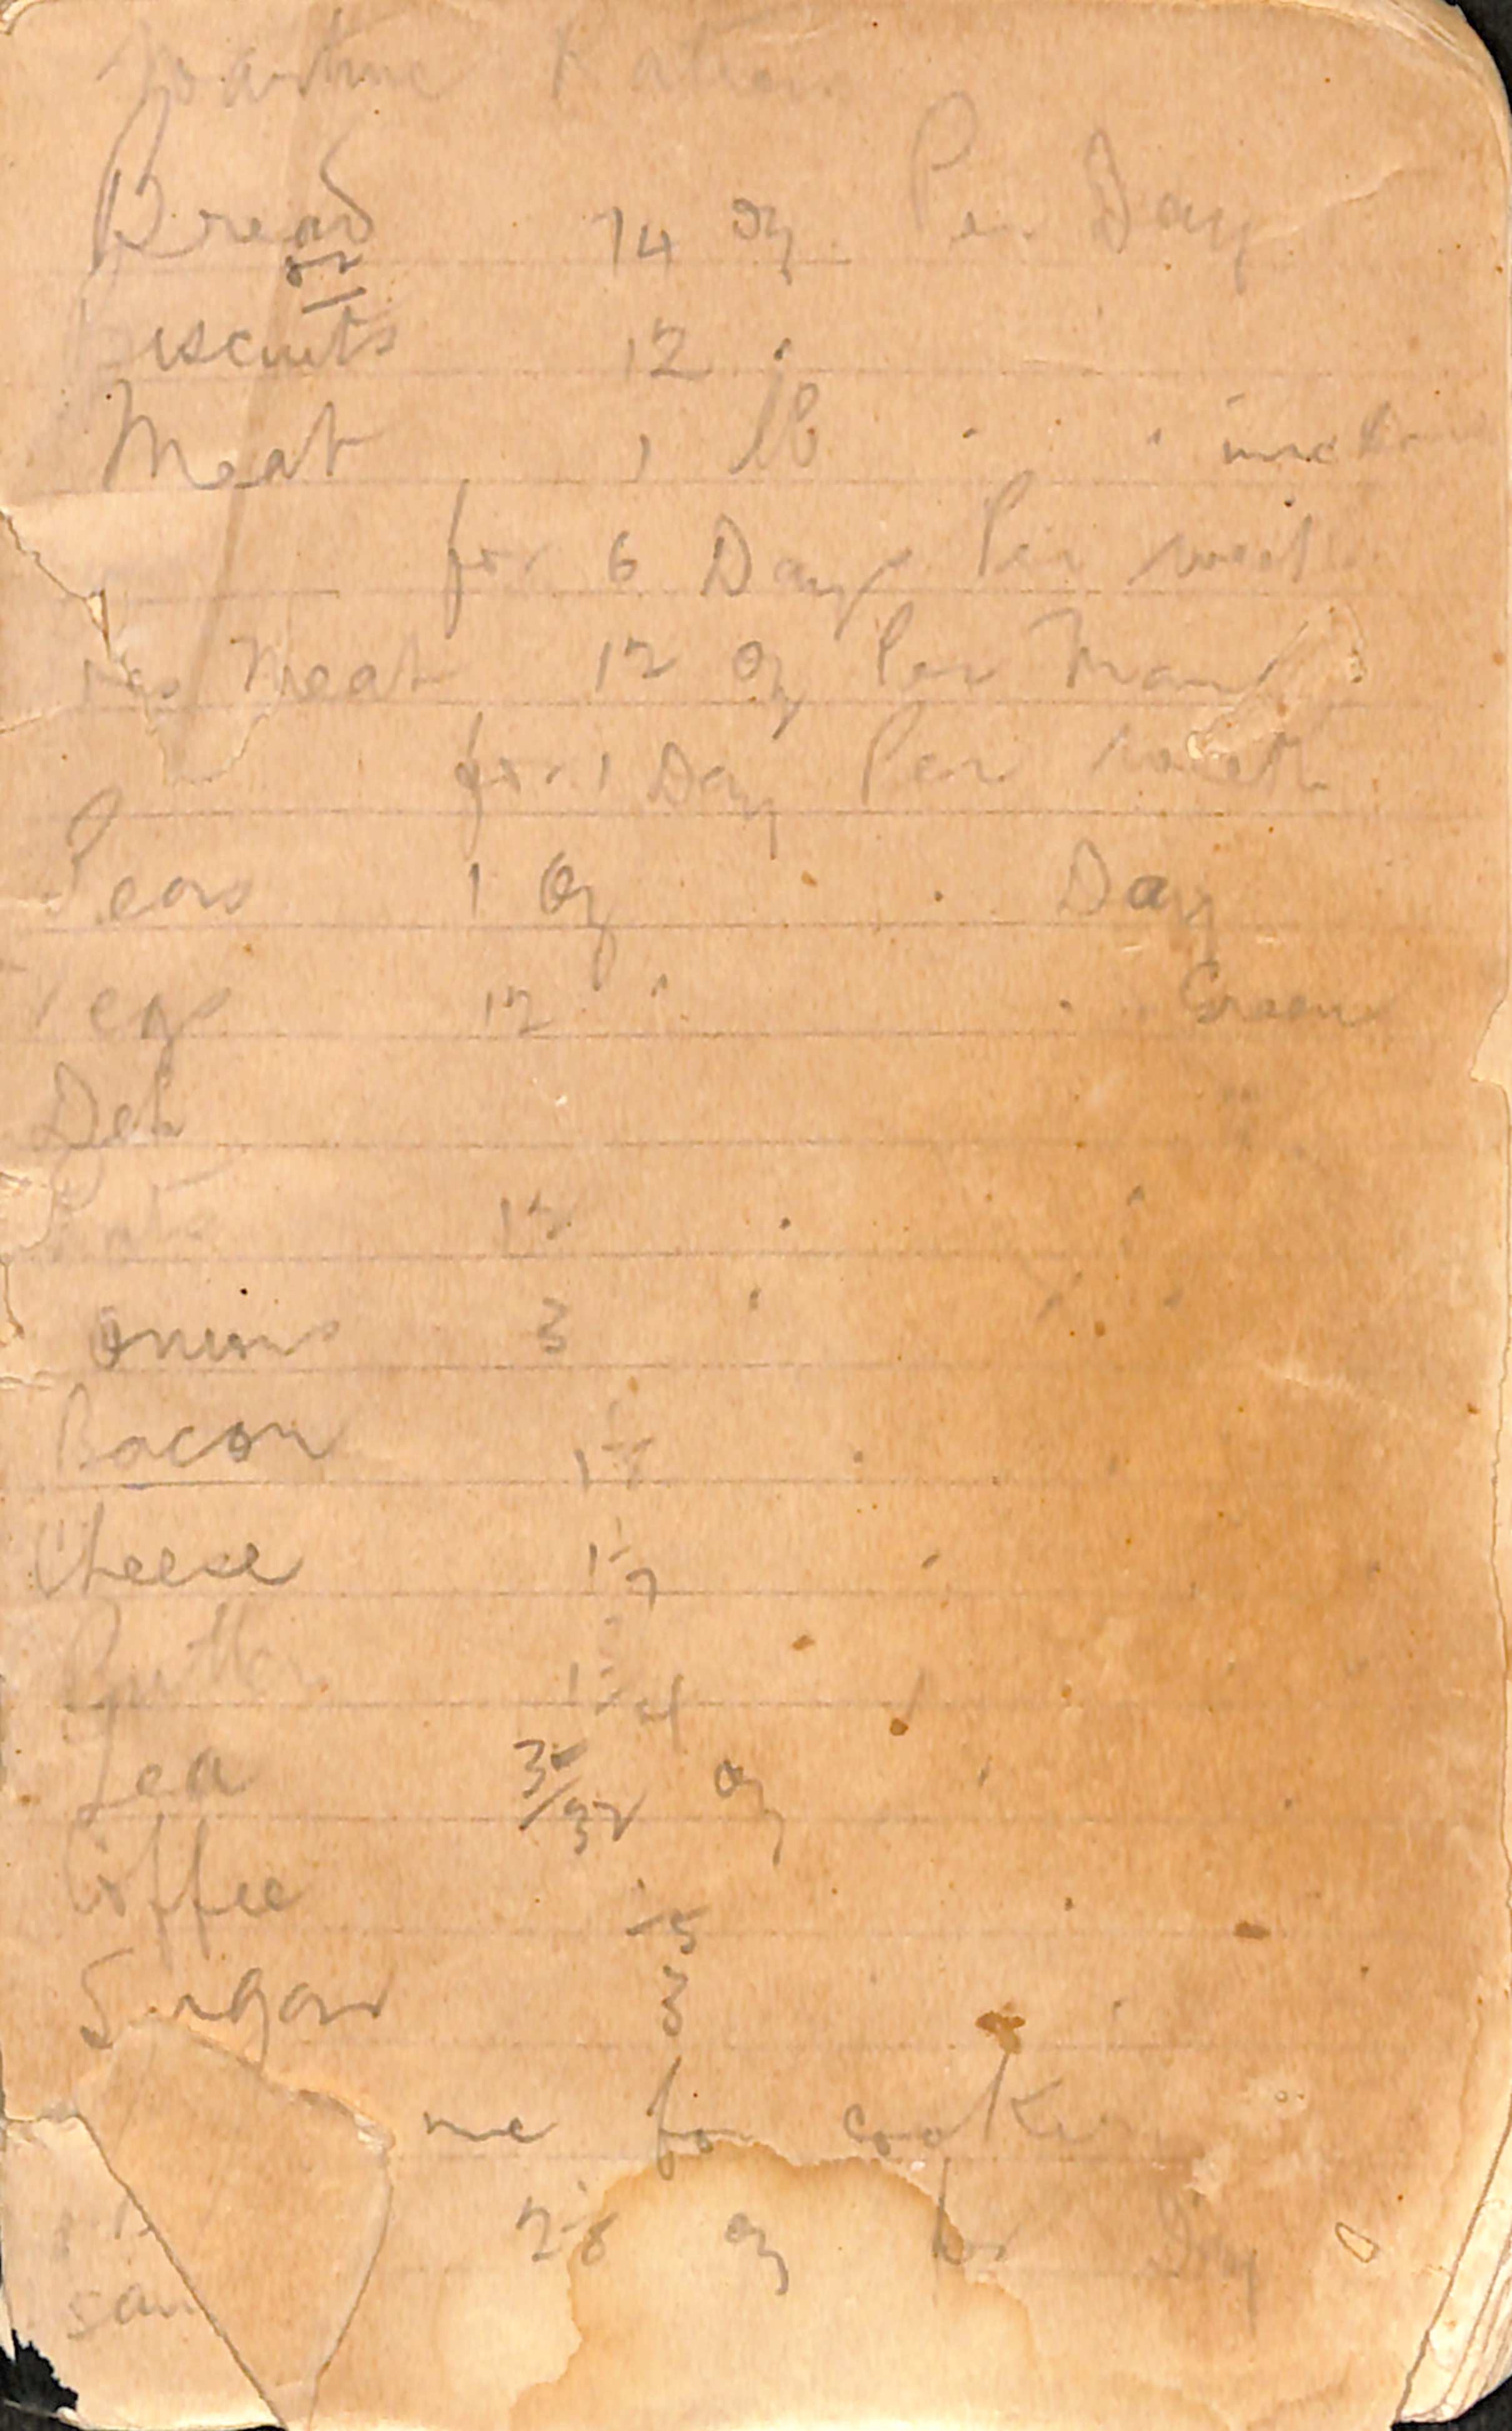 Wartime Ration
Bread 14 oz Per Day
or
Biscuits 12 "
Meat 1 lb " "
for 6 Days Per week
Meat 12 oz Per Man
for 1 Day Per week
Peas 1 oz " Day
Vegs 12 " " Green
Deh
12 " "
Onions 3 " "
Bacon 1 " "
Cheese 1 1/2 "
Butter 1 3/4 "
Tea 3/32 oz "
Coffee 1/5
Sugar 3
for
2 1/8 oz per Day